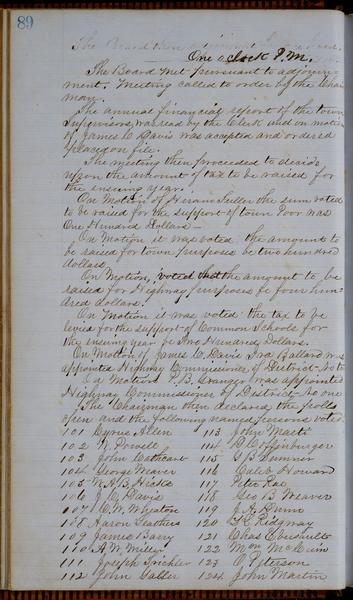 89
The Board then adjourned
One o clock P.M.
The Board met pursuant to adjourn
ment. Meeting called to order by the Chair
man.
The annual financial report of the town
Supervisors was read by the Clerk and on motion
of James C Davis was accepted and ordered
placed on file.
The meeting then proceeded to decide
upon the amount of tax to be raised for
the ensuing year.
On Motion of Hiram Fuller the sum voted
to be raised for the support of town Poor was
One Hundred Dollars —
On Motion it was voted the amount to be
raised for town purposes be two hundred
dollars.
On Motion, voted that the amount to be
raised for Highway purposes be four hun-
dred dollars.
On Motion it was voted the tax to be
levied for the support of Common Schools for
the ensuing year be Two Hundred Dollars.
On Motion of James C. Davis Ira Ballard was
appointed Highway Commissioner of District - No two
On Motion P. B. Granger was appointed
Highway Commissioner of District - No one
The Chairman then declared the polls
open and the following named persons voted.
101 Cyrus Allen 113 John Marte
102 N. Powell 114
103 John Cathcart 115 G B Sumner
104 George Maver 116 Caleb Howard
105 117 Peter Rae
106 J. C. Davis 118 Geo B Weaver
107 C. W. Wheaton 119 J. A. Dunn
108 Aaron Stathers 120 Ridgway
109 James Barry 121 Chas Ebersoults
110 A. W. Miller 122 Wm McCuin
111 Joseph Trickler 123 O Peterson
112 John Calder 124 John Martin